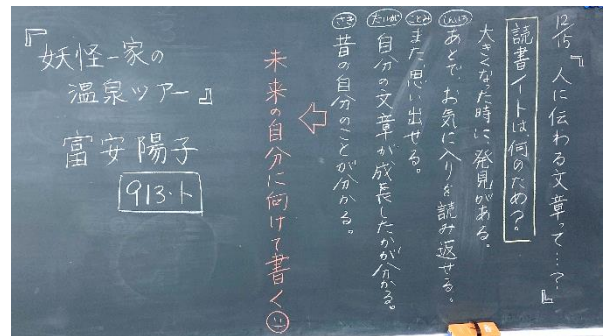 12/15 『人に伝わる文章って…？』
読書ノートは何のため？
大きくなった時に発見がある。
あとで、お気に入りを読み返せる。
ことみ また、思い出せる。
たいが 自分の文章が成長したかが分かる。
さき 昔の自分のことが分かる。
未来の自分に向けて書く
『妖怪一家の
温泉ツアー』
富安陽子
913.ト